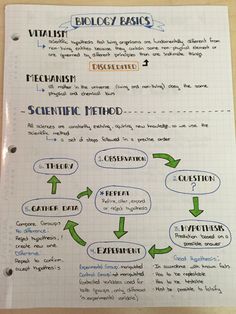 BIOLOGY BASICS
VITALISM
↳ scientific hypothesis that living organisms are fundamentally different from
non-living entities because they contain some non-physical element or
are governed by different principles than are inanimate things
DISCREDITED
MECHANISM
↳ all matter in the universe (living and non-living) obey the same
physical and chemical laws
SCIENTIFIC METHOD
All sciences are constantly evolving, acquiring new knowledge, so we use the
scientific method
↳ a set of steps followed in a precise order
1. OBSERVATION
6. THEORY
2. QUESTION
?
* REPEAT
Refine, alter, expand
or reject hypothesis
5. GATHER DATA
Compare Groups
No difference:
Reject hypothesis,
create new one
Difference:
Repeat to confirm
accept hypothesis
3. HYPOTHESIS
Prediction based on a
possible answer
4. EXPERIMENT
Experimental Group: manipulated
Control Group: not manipulated
(controlled variables used for
both groups, only difference
is experimental variable)
Good Hypothesis:
In accordance with known facts
Has to be repeatable
Has to be testable
Must be possible to falsify